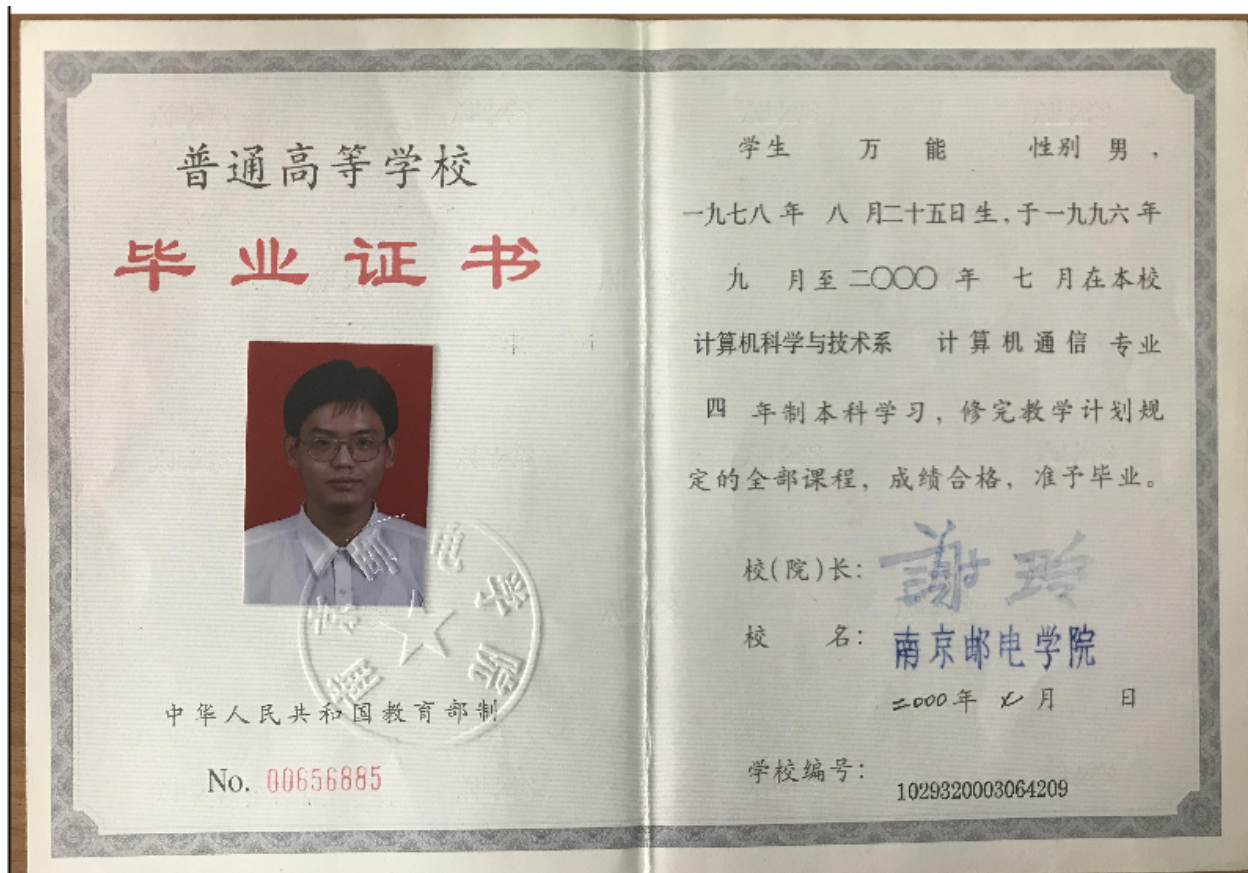 普通高等学校
毕业证书
南京邮电学院
中华人民共和国教育部制
No. 00656885
学生 万能 性别 男，
一九七八年 八 月二十五日生，于一九九六年
九 月至二〇〇〇年 七 月在本校
计算机科学与技术系 计算机通信 专业
四 年制本科学习，修完教学计划规
定的全部课程，成绩合格，准予毕业。
校(院)长：謝玲
校 名：南京邮电学院
二000年 七月 日
学校编号：1029320003064209